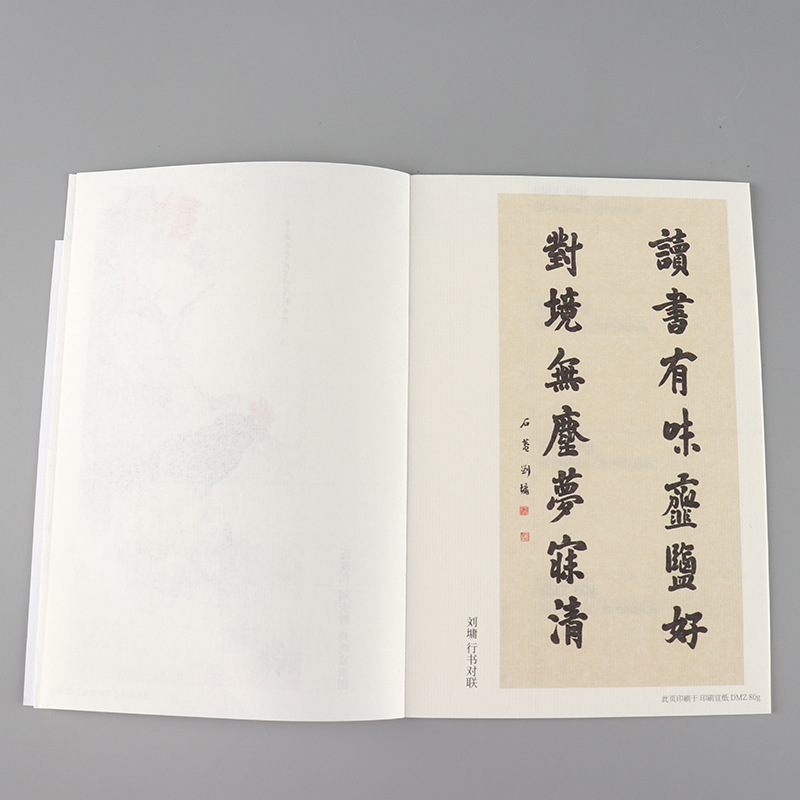 讀書有味齏鹽好
對境無塵夢寐清
石菴劉墉
刘墉 行书对联
此页印刷于 印刷宣纸 DMZ 80g